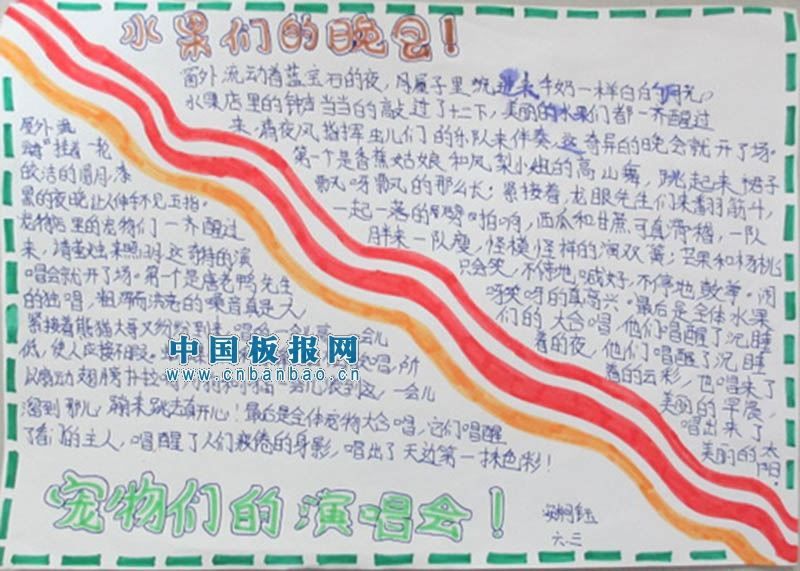 水果们的晚会！
窗外流动着蓝宝石的夜，月屋子里 进来牛奶一样白白的月光，
水果店里的钟声当当的敲过了十二下，美丽的水果们都一齐醒过
来，请夜风指挥虫儿们的乐队来伴奏，这奇异的晚会就开了场。
第一个是香蕉姑娘和凤梨小姐的高山舞，跳起来裙子
飘呀飘的那么长；紧接着，龙眼先生们来翻筋斗，
一起一落的劈劈啪响，西瓜和甘蔗可真滑稽，一队
胖来一队瘦，怪模怪样的演双簧；芒果和杨桃
只会笑，不停地喊好，不停地鼓掌。闹
呀笑呀的真高兴。最后是全体水果
们的大合唱，他们唱醒了沉睡
着的夜，他们唱醒了沉睡
着的云彩，也唱来了
美丽的早晨，
唱出来了
美丽的太
阳。
屋外流
动着 挂着一轮
皎洁的眉月，漆
黑的夜晚让人伸手不见五指。
宠物店里的宠物们一齐醒过
来，请萤火虫来照明，这奇特的演
唱会就开了场。第一个是唐老鸭先生
的独唱，粗 而洪亮的嗓音真是大
紧接着熊猫大哥又 到来 一会儿
低，使人应接不暇。 唱，所
以扇动翅膀扑拉 一会儿 到这，一会儿
溜到那儿，翻来跳去真开心！最后是全体宠物大合唱，它们唱醒
了 的主人，唱醒了人们疲倦的身影，唱出了天边第一抹色彩！
中国板报网
www.cnbanbao.cn
宠物们的演唱会！
六.三